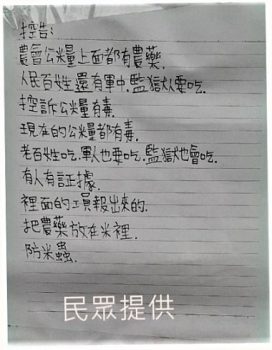 控告:
農會公糧上面都有農藥.
人民百姓還有軍中.監獄人要吃.
控訴公糧有毒.
現在的公糧都有毒.
老百姓吃.軍人也要吃.監獄也會吃.
有人有証據.
裡面的工員報出來的.
把農藥放在米裡.
防米蟲.
民眾提供